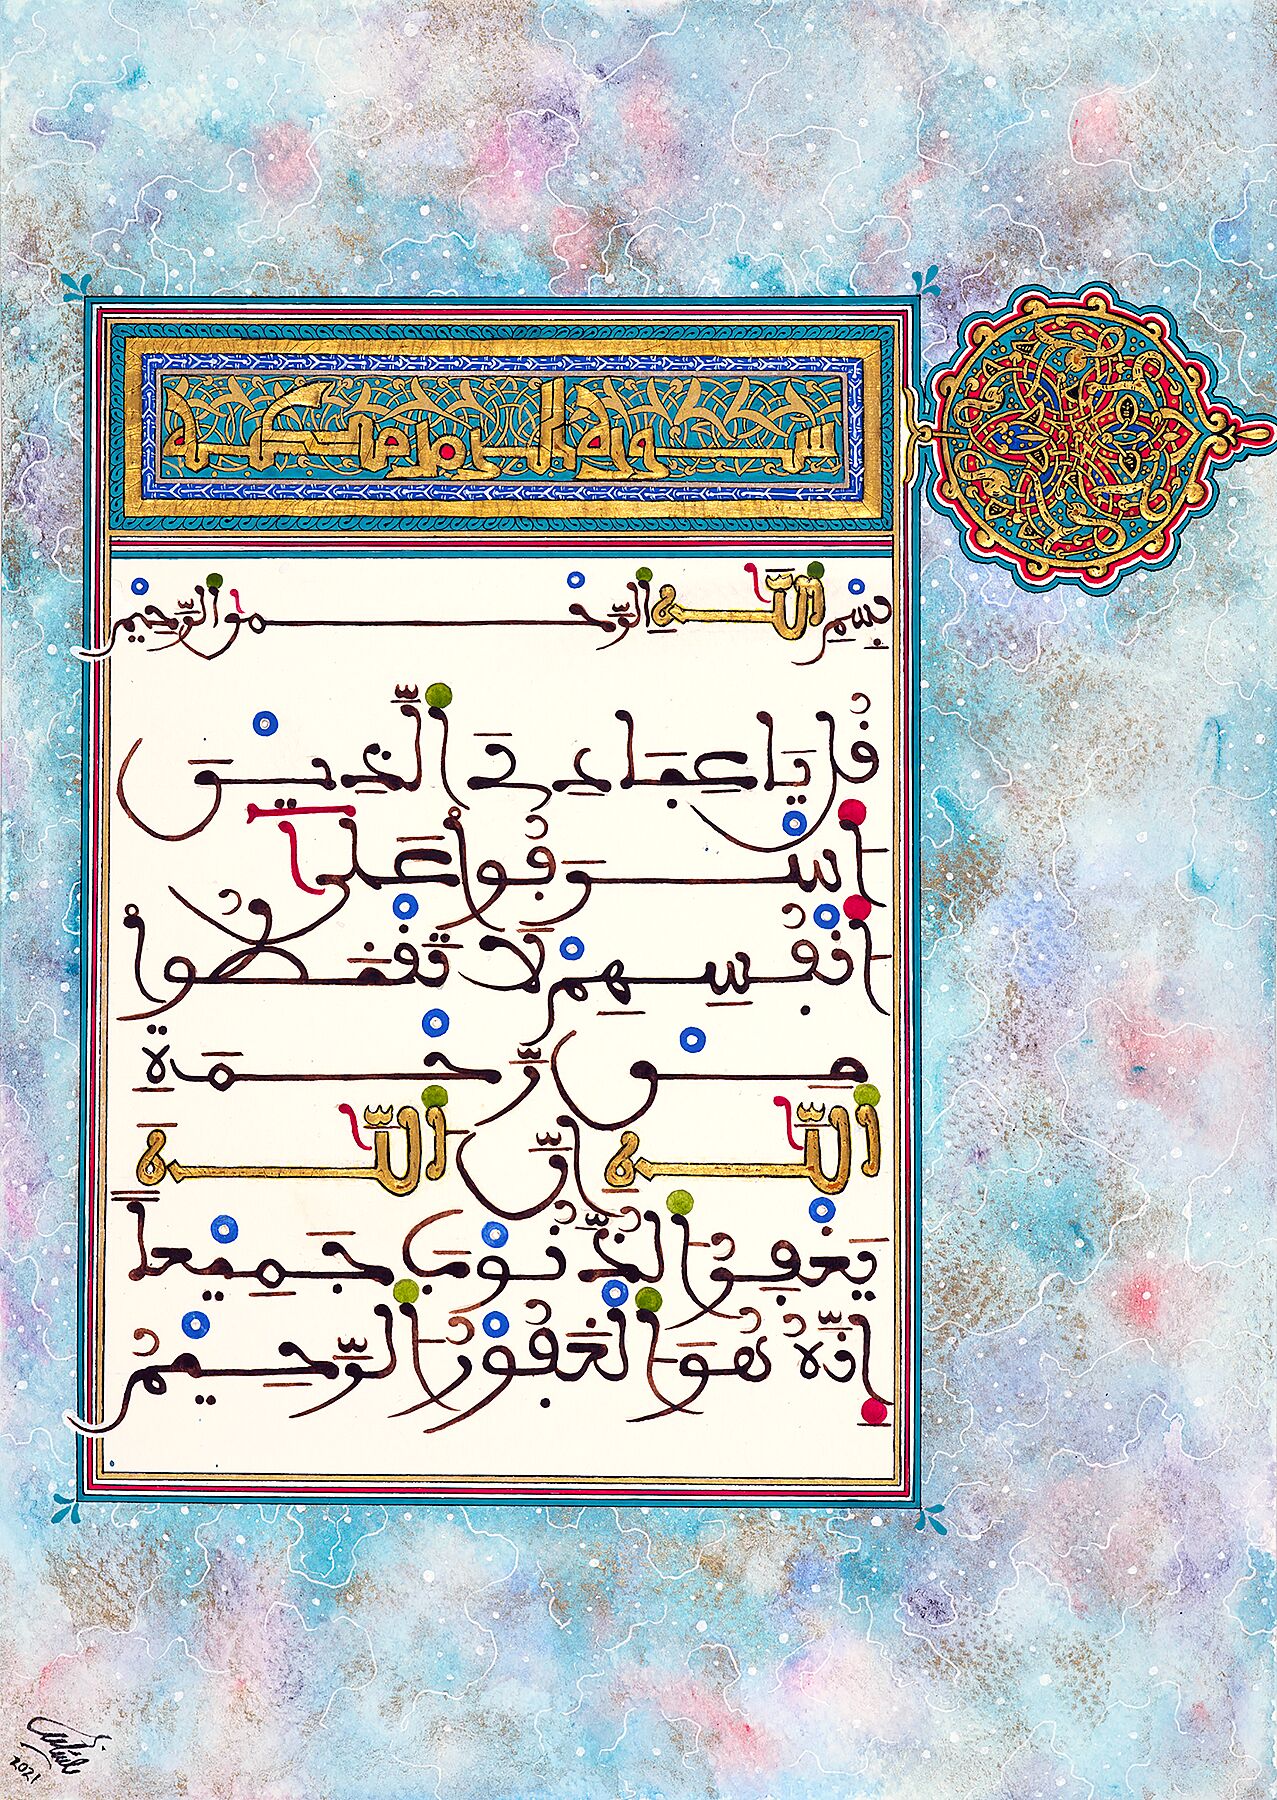 سورة الزمر مكية
بِسْمِ اللَّهِ الرَّحْمَٰنِ الرَّحِيمِ
قُلْ يَا عِبَادِيَ الَّذِينَ
أَسْرَفُوا عَلَىٰ
أَنْفُسِهِمْ لَا تَقْنَطُوا
مِنْ رَّحْمَةِ
اللَّهِ إِنَّ اللَّهَ
يَغْفِرُ الذُّنُوبَ جَمِيعاً
إِنَّهُ هُوَ الْغَفُورُ الرَّحِيمُ
2021